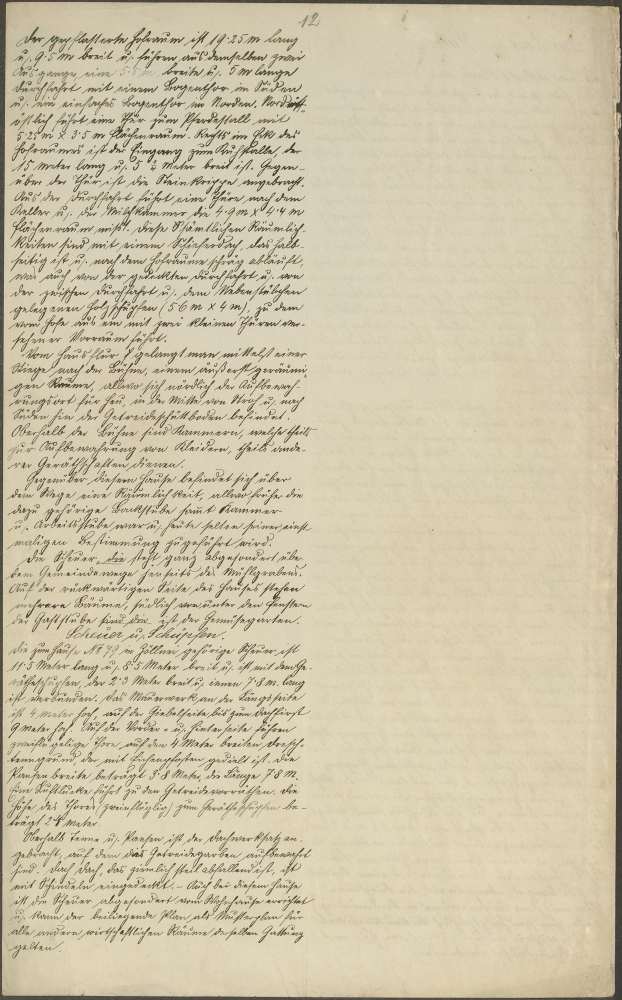 12
Der gepflasterte Hofraum, ist 19·25 m lang
u. 9·5 m breit u. führen aus demselben zwei
Ausgange, eine 5·5 m breite u. 5 m lange
Durchfahrt mit einem Bogenthor im Süden
u. ein einfaches Bogenthor im Norden. Nord
östlich führt eine Thür zum Pferdestall mit
5·25 m x 3·5 m Flächenraum. Rechts im Eck des
Hofraumes ist der Eingang zum Kuhstalle, der
15 Meter lang u. 5 Meter breit ist. Gegen-
über der Thür ist die Steinkrippe angebracht.
Aus der Durchfahrt führt eine Thüre nach dem
Keller u. der Milchkammer die 4·9 m x 4·4 m
Flächenraum mißt. Diese sämtlichen Räumlich-
keiten sind mit einem Schieferdach, das halb-
seitig ist u. nach dem Hofraume schräg abläuft,
wie auch von der gedeckten Durchfahrt u. von
der zwischen Durchfahrt u. dem Nebenstübchen
gelegenen Holzschupfen (5·6 m x 4 m), zu dem
vom Hofe aus ein mit zwei kleinen Thüren ver-
sehener Vorraum führt.
Vom Hausflur gelangt man mittelst einer
Stiege nach der Bühne, einem äußerst geräumi-
gen Raume, allwo sich nördlich der Aufbewah-
rungsort für Heu, in der Mitte von Stroh u. nach
Süden hin der Getreideschüttboden befindet.
Oberhalb der Bühne sind Kammern, welche theils
zur Aufbewahrung von Kleidern, theils ande-
rer Geräthschaften dienen.
Gegenüber diesem Hause befindet sich über
dem Wege eine Räumlichkeit, allwo früher die
dazu gehörige Backstube samt Kammer
u. Arbeitsstube war u. heute selten seiner einst
maligen Bestimmung zugeführt wird.
Die Scheuer, die steht ganz abgesondert übe
dem Gemeindewege jenseits des Mühlgrabens.
Auf der rückwärtigen Seite des Hauses stehen
mehrere Bäume, südlich unter den Fenstern
der Gaststube ist der Gemüsegarten.
Scheuer u. Schupfen.
Die zum Hause № 79 in gehörige Scheuer ist
11·5 Meter lang u. 8·5 Meter breit u. ist mit dem Ge-
räthschupfen, der 2·3 Meter breit u. innen 7·8 m lang
ist verbunden. Das Mauerwerk an der Längsseite
ist 4 Meter hoch, auf der Giebelseite bis zum Dachfirst
9 Meter hoch. Auf der Vorder- u. Hinterseite führen
Thore, auf den 4 Meter breiten, Dresch-
tennengrund, der mit Eichenpfosten gedielt ist. Die
Pansenbreite beträgt 3·8 Meter, die Länge 7·8 M.
Eine Luftlucke führt zu den Getreidevorräthen. Die
Höhe des Thores (zweiflüglig) zum Geräthschupfen be-
trägt 2·4 Meter.
Oberhalb Tenne u. Pansen ist der Dachwerksatz an-
gebracht, auf dem das Getreidegarben aufbewahrt
sind. Das Dach, das ziemlich steil abfallend ist, ist
mit Schindeln eingedeckt. – Auch bei diesem Hause
ist die Scheuer abgesondert vom Wohnhause errichtet
u. kann der beiliegende Plan, als Musterplan für
alle andern, wirtschaftlichen Räume derselben Gattung
gelten.